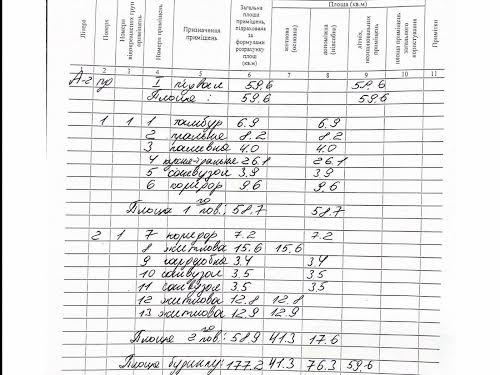 Площа (кв.м)
Літера
Поверхи
Номери відокремлених груп приміщень
Номери приміщень
Призначення приміщень
Загальна площа приміщень, підрахована за формулами розрахунку площ (кв.м)
житлова (основна)
допоміжна (підсобна)
літніх, неопалювальних приміщень
площа приміщень загального користування
Примітки
1 2 3 4 5 6 7 8 9 10 11
А-2 пд I підвал 59.6 59.6
Площа: 59.6 59.6
1 1 1 тамбур 6.9 6.9
2 пральня 8.2 8.2
3 паливна 4.0 4.0
4 кухня-їдальня 26.1 26.1
5 санвузол 3.9 3.9
6 коридор 9.6 9.6
Площа 1 го пов.: 58.7 58.7
2 1 7 коридор 7.2 7.2
8 житлова 15.6 15.6
9 гардеробна 3.4 3.4
10 санвузол 3.5 3.5
11 санвузол 3.5 3.5
12 житлова 12.8 12.8
13 житлова 12.9 12.9
Площа 2 го пов: 58.9 41.3 17.6
Площа будинку: 177.2 41.3 76.3 59.6